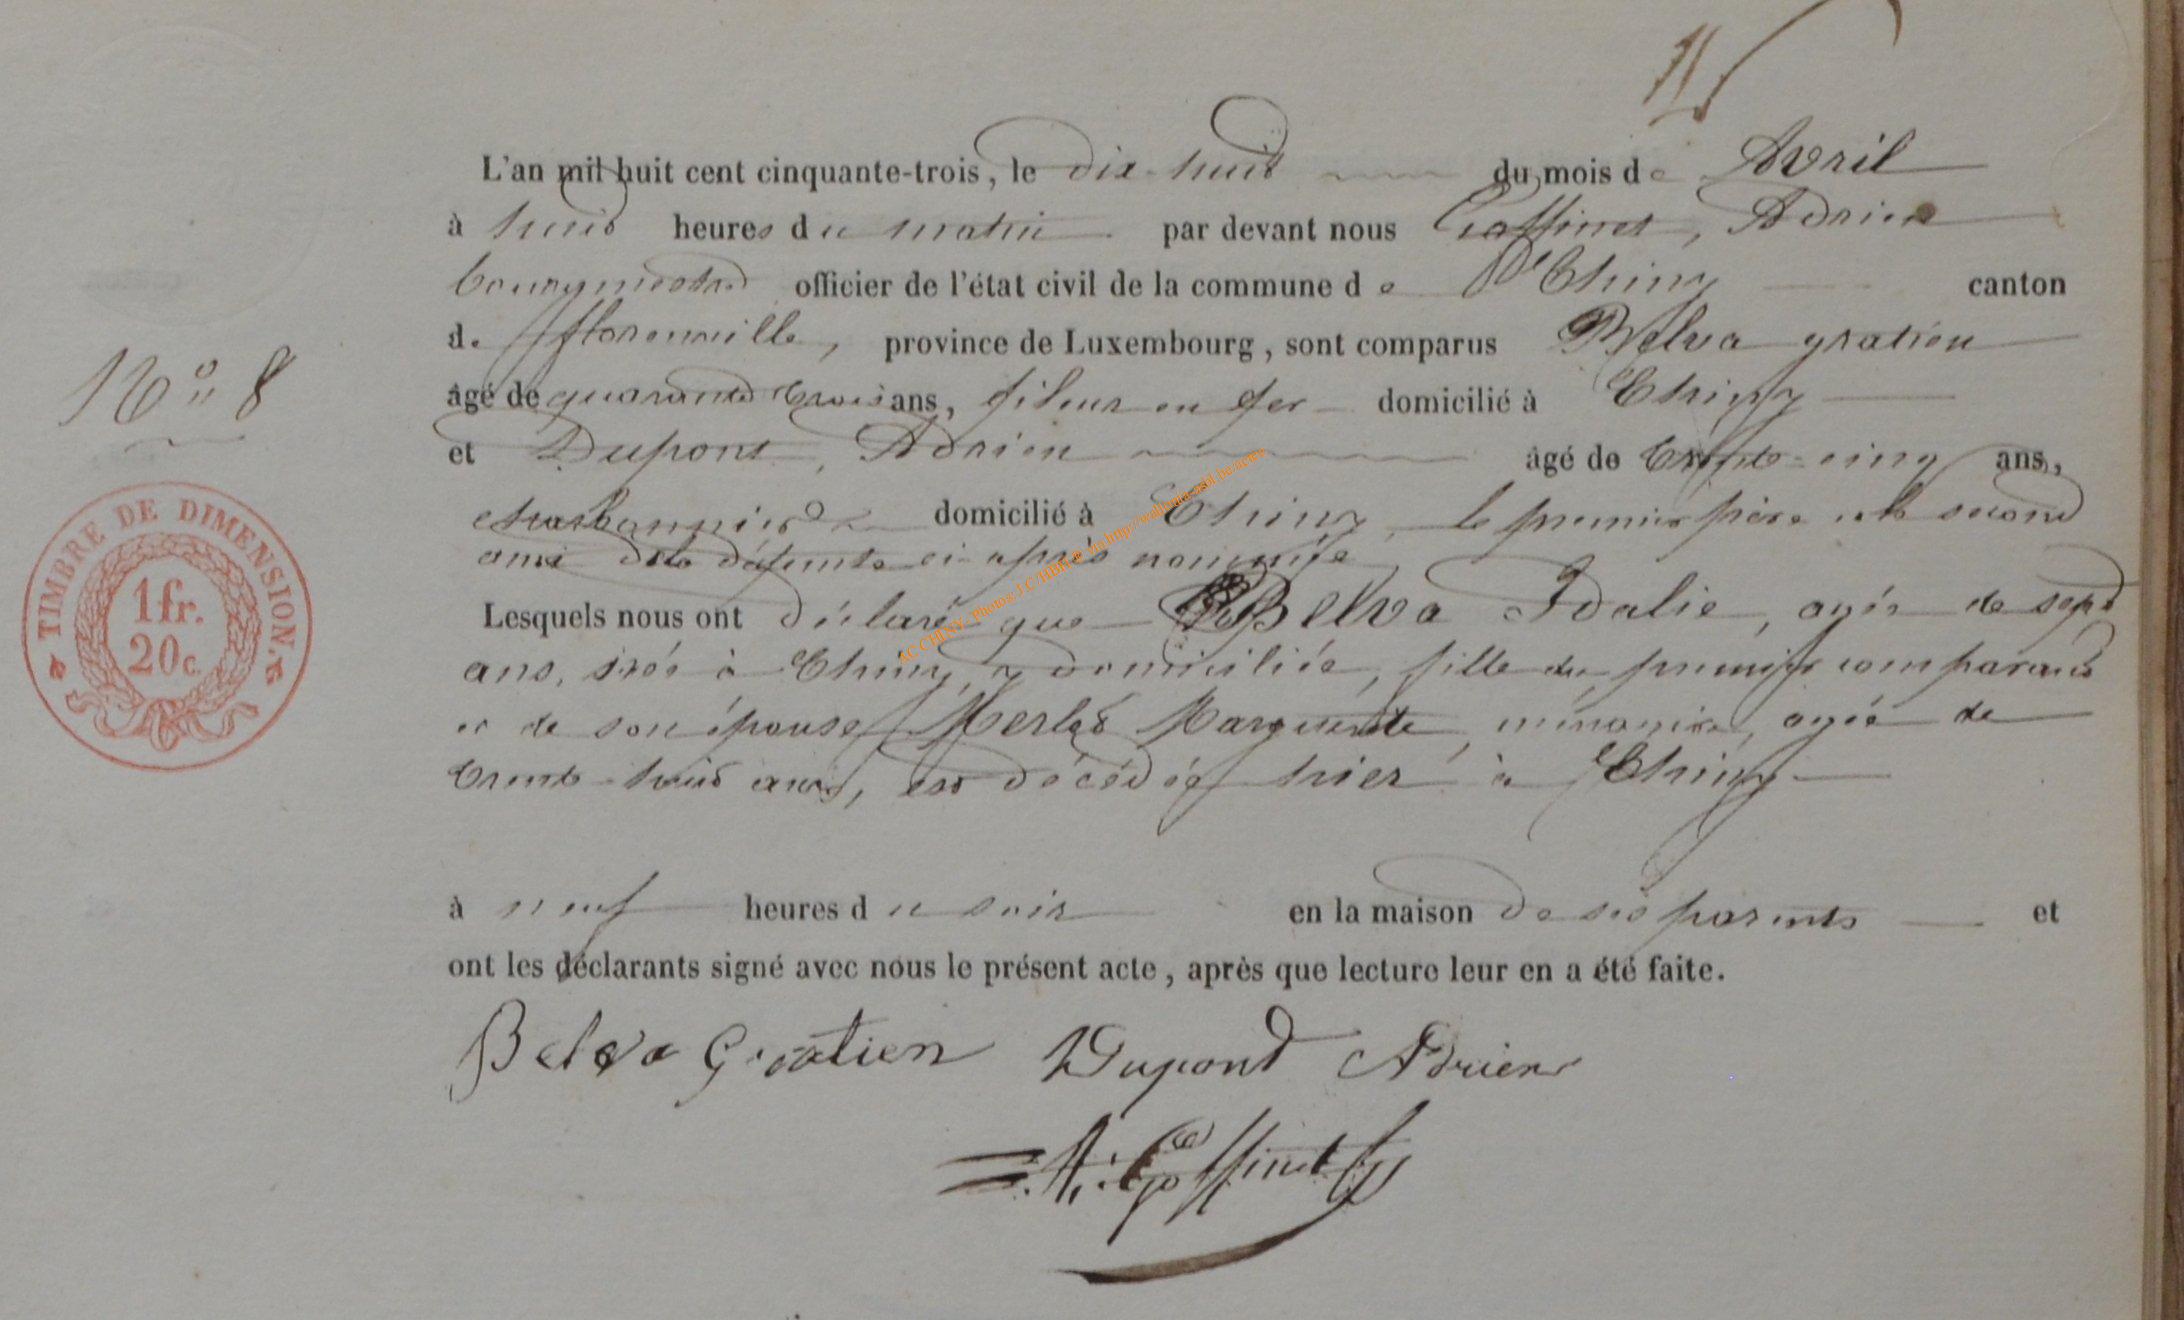 L'an mil huit cent cinquante-trois, le dix-huit du mois de Avril
à huit heures du matin par devant nous Goffinet, Adrien
bourgmestre officier de l'état civil de la commune de Chiny canton
de florenville, province de Luxembourg, sont comparus Belva gratien
âgé de quarante trois ans, fileur en fer domicilié à Chiny
et Dupont, Adrien âgé de trente-cinq ans,
charbonnier domicilié à Chiny, le premier père et le second
ami de la défunte ci-après nommée
Lesquels nous ont déclaré que Belva Idalie, agée de sept
ans, née à Chiny, y domiciliée, fille du premier comparant
et de son épouse Marguerite, ménagère, agée de
trente-huit ans, est décédée hier à Chiny
à neuf heures du soir en la maison de ses parents et
ont les déclarants signé avec nous le présent acte, après que lecture leur en a été faite.
Belva Gratien Dupont Adrien
A. Goffinet
N° 8
TIMBRE DE DIMENSION.
1 fr.
20 c.